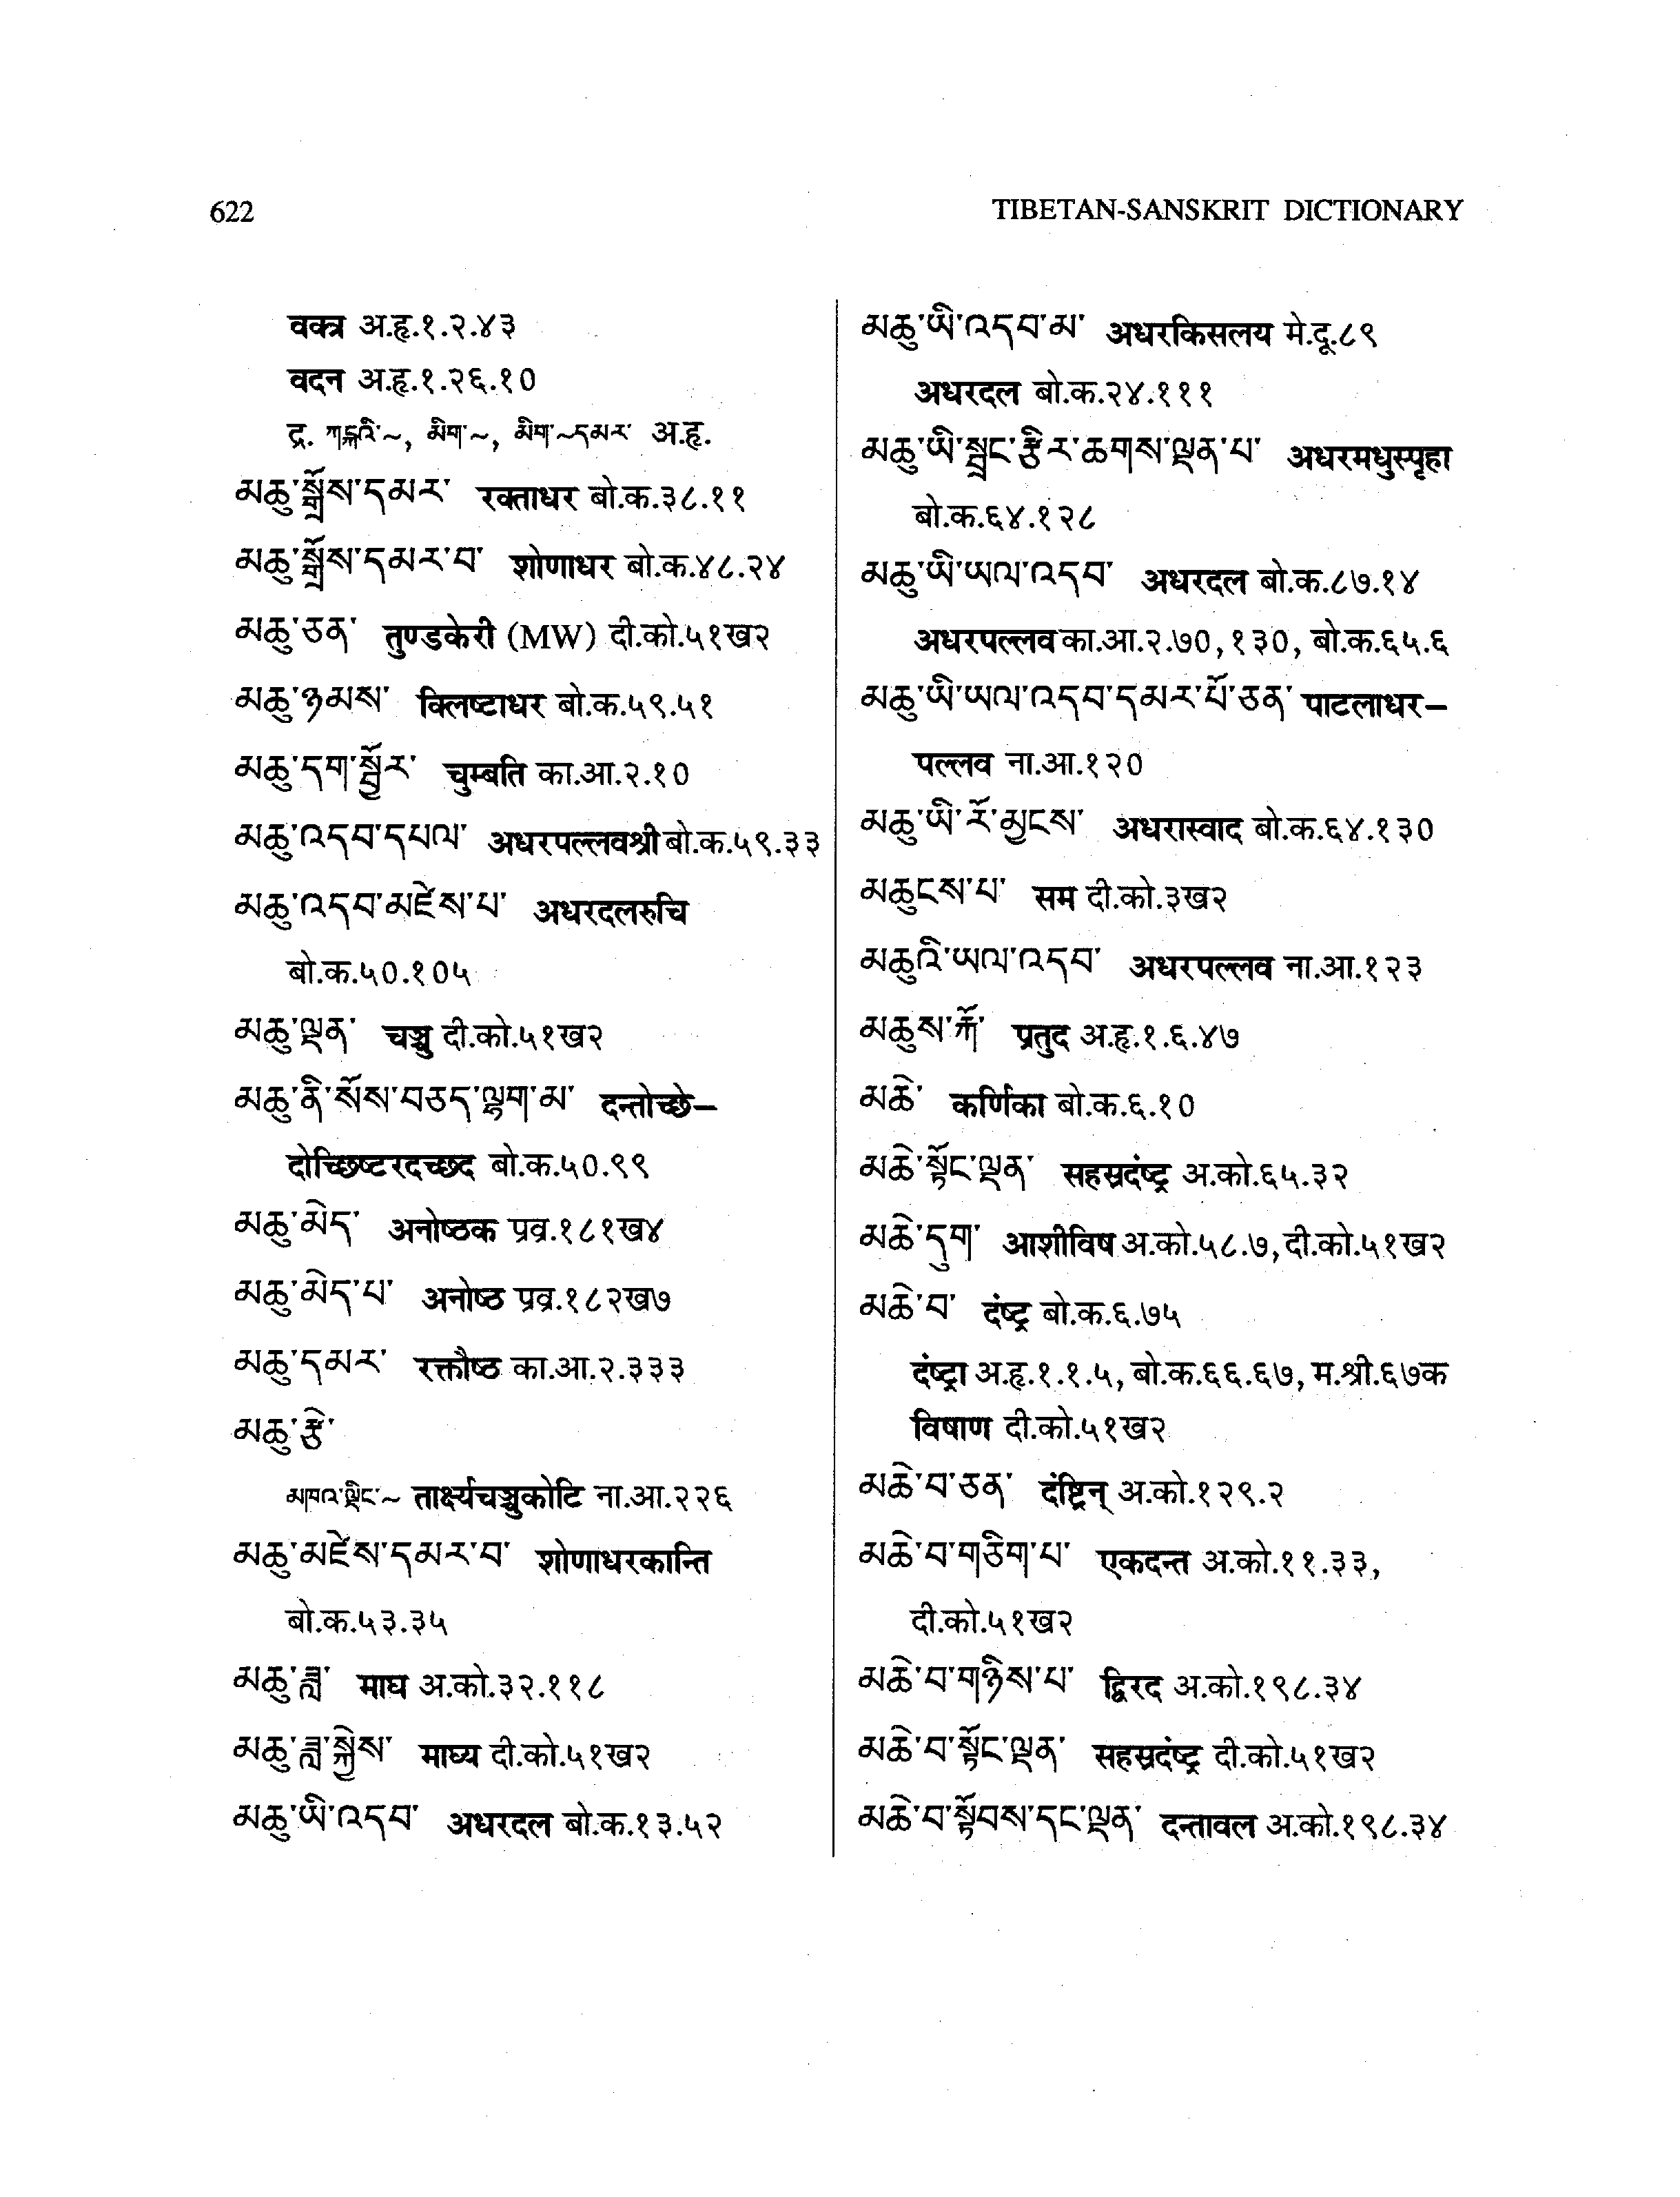 622
TIBETAN-SANSKRIT DICTIONARY
वक्त्र अ.हृ.१.२.४३
वदन अ.हृ.१.२६.१०
द्र. ཀཱརྐའི་~, མིག་~, མིག་~དམར་ अ.हृ.
མཆུ་སྒྲོས་དམར་ रक्ताधर बो.क.३८.११
མཆུ་སྒྲོས་དམར་བ་ शोणाधर बो.क.४८.२४
མཆུ་ཅན་ तुण्डकेरी (MW) दी.को.५१ख२
མཆུ་ཉམས་ क्लिष्टाधर बो.क.५९.५१
མཆུ་དག་སྦྱོར་ चुम्बति का.आ.२.१०
མཆུ་འདབ་དཔལ་ अधरपल्लवश्री बो.क.५९.३३
མཆུ་འདབ་མཛེས་པ་ अधरदलरुचि
बो.क.५०.१०५
མཆུ་ལྡན་ चञ्चु दी.को.५१ख२
མཆུ་ནི་སོས་བཅད་ལྷག་མ་ दन्तोच्छे–
दोच्छिष्टरदच्छद बो.क.५०.९९
མཆུ་མེད་ अनोष्ठक प्रव्र.१८१ख४
མཆུ་མེད་པ་ अनोष्ठ प्रव्र.१८२ख७
མཆུ་དམར་ रक्तौष्ठ का.आ.२.३३३
མཆུ་རྩེ་
མཁའ་ལྡིང་~ तार्क्ष्यचञ्चुकोटि ना.आ.२२६
མཆུ་མཛེས་དམར་བ་ शोणाधरकान्ति
बो.क.५३.३५
མཆུ་ཟླ་ माघ अ.को.३२.११८
མཆུ་ཟླ་སྐྱེས་ माघ्य दी.को.५१ख२
མཆུ་ཡི་འདབ་ अधरदल बो.क.१३.५२
མཆུ་ཡི་འདབ་མ་ अधरकिसलय मे.दू.८९
अधरदल बो.क.२४.१११
མཆུ་ཡི་སྦྲང་རྩིར་ཆགས་ལྡན་པ་ अधरमधुस्पृहा
बो.क.६४.१२८
མཆུ་ཡི་ཡལ་འདབ་ अधरदल बो.क.८७.१४
अधरपल्लव का.आ.२.७०,१३०, बो.क.६५.६
མཆུ་ཡི་ཡལ་འདབ་དམར་པོ་ཅན་ पाटलाधर–
पल्लव ना.आ.१२०
མཆུ་ཡི་རོ་མྱངས་ अधरास्वाद बो.क.६४.१३०
མཆུངས་པ་ सम दी.को.३ख२
མཆུའི་ཡལ་འདབ་ अधरपल्लव ना.आ.१२३
མཆུས་རྐོ་ प्रतुद अ.हृ.१.६.४७
མཆེ་ कर्णिका बो.क.६.१०
མཆེ་སྟོང་ལྡན་ सहस्रदंष्ट्र अ.को.६५.३२
མཆེ་དུག་ आशीविष अ.को.५८.७, दी.को.५१ख२
མཆེ་བ་ दंष्ट्र बो.क.६.७५
दंष्ट्रा अ.हृ.१.१.५, बो.क.६६.६७, म.श्री.६७क
विषाण दी.को.५१ख२
མཆེ་བ་ཅན་ दंष्ट्रिन् अ.को.१२९.२
མཆེ་བ་གཅིག་པ་ एकदन्त अ.को.११.३३,
दी.को.५१ख२
མཆེ་བ་གཉིས་པ་ द्विरद अ.को.१९८.३४
མཆེ་བ་སྟོང་ལྡན་ सहस्रदंष्ट्र दी.को.५१ख२
མཆེ་བ་སྟོབས་དང་ལྡན་ दन्तावल अ.को.१९८.३४